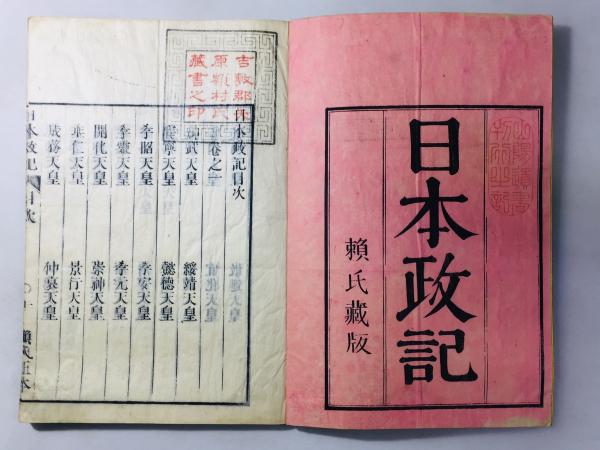 日本政記
賴氏藏版
山陽遺書
吉敷郡
村氏
藏書之印
本政記目次
卷之一
神武天皇 綏靖天皇
安寧天皇 懿德天皇
孝昭天皇 孝安天皇
孝靈天皇 孝元天皇
開化天皇 崇神天皇
垂仁天皇 景行天皇
成務天皇 仲哀天皇
日本政記 目次 〇一 賴氏正本